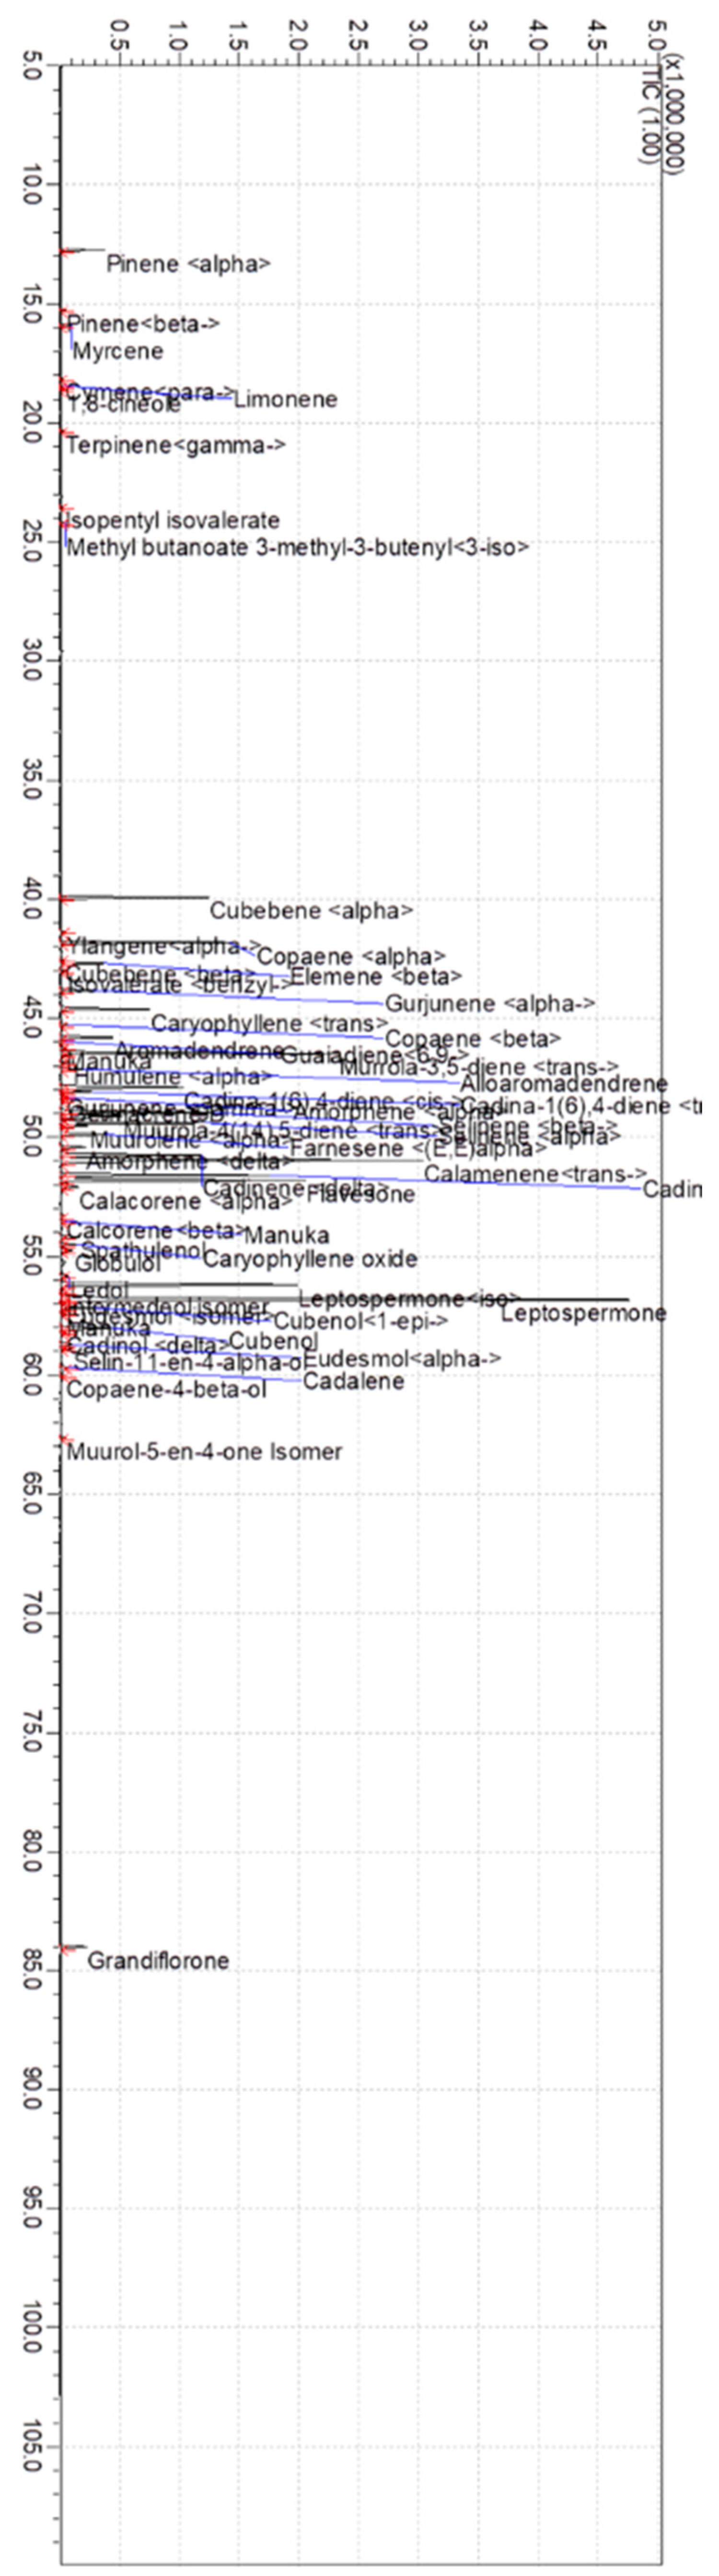 (x1,000,000)
TIC (1.00)
5.0
4.5
4.0
3.5
3.0
2.5
2.0
1.5
1.0
0.5
5.0
10.0
15.0
20.0
25.0
30.0
35.0
40.0
45.0
50.0
55.0
60.0
65.0
70.0
75.0
80.0
85.0
90.0
95.0
100.0
105.0
Pinene <alpha>
Pinene<beta->
Myrcene
Cymene<para->
Limonene
1,8-cineole
Terpinene<gamma->
Isopentyl isovalerate
Methyl butanoate 3-methyl-3-butenyl<3-iso>
Cubebene <alpha>
Ylangene<alpha->
Copaene <alpha>
Cubebene <beta>
Elemene <beta>
Isovalerate <benzyl->
Gurjunene <alpha->
Caryophyllene <trans>
Copaene <beta>
Aromadendrene
Guaiadiene<6,9->
Manuka
Murrola-3,5-diene <trans->
Humulene <alpha>
Alloaromadendrene
Cadina-1(6),4-diene <cis->
Cadina-1(6),4-diene <tr
Amorphene <alpha>
Selinene <beta->
Muurola-4(14),5-diene <trans>
Selinene <alpha>
Muurolene <alpha>
Farnesene <(E,E)alpha>
Amorphene <delta>
Calamenene<trans->
Cadinene <delta>
Flavesone
Cadin
Calacorene <alpha>
Calcorene <beta>
Manuka
Spathulenol
Globulol
Caryophyllene oxide
Ledol
Leptospermone<iso>
Intermedeol isomer
Leptospermone
Eudesmol <isomer>
Cubenol<1-epi->
Manuka
Cubenol
Cadinol <delta>
Eudesmol<alpha->
Selin-11-en-4-alpha-ol
Cadalene
Copaene-4-beta-ol
Muurol-5-en-4-one Isomer
Grandiflorone